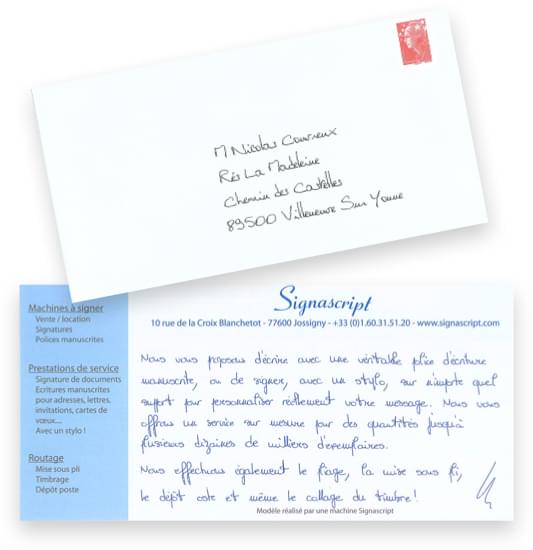 M Nicolas Courieux
Rés La Madeleine
Chemin des Castelles
89500 Villeneuve Sur Yonne
Signascript
10 rue de la Croix Blanchetot - 77600 Jossigny - +33 (0)1.60.31.51.20 - www.signascript.com
Machines à signer
Vente / location
Signatures
Polices manuscrites
Prestations de service
Signature de documents
Ecritures manuscrites
pour adresses, lettres,
invitations, cartes de
vœux...
Avec un stylo !
Routage
Mise sous pli
Timbrage
Dépôt poste
Nous vous proposons d'écrire avec une véritable police d'écriture
manuscrite, ou de signer, avec un stylo, sur n'importe quel
support pour personnaliser réellement votre message. Nous vous
offrons un service sur mesure pour des quantités jusqu'à
plusieurs dizaines de milliers d'exemplaires.
Nous effectuons également le pliage, la mise sous pli,
le dépôt et même le collage du timbre !
Modèle réalisé par une machine Signascript